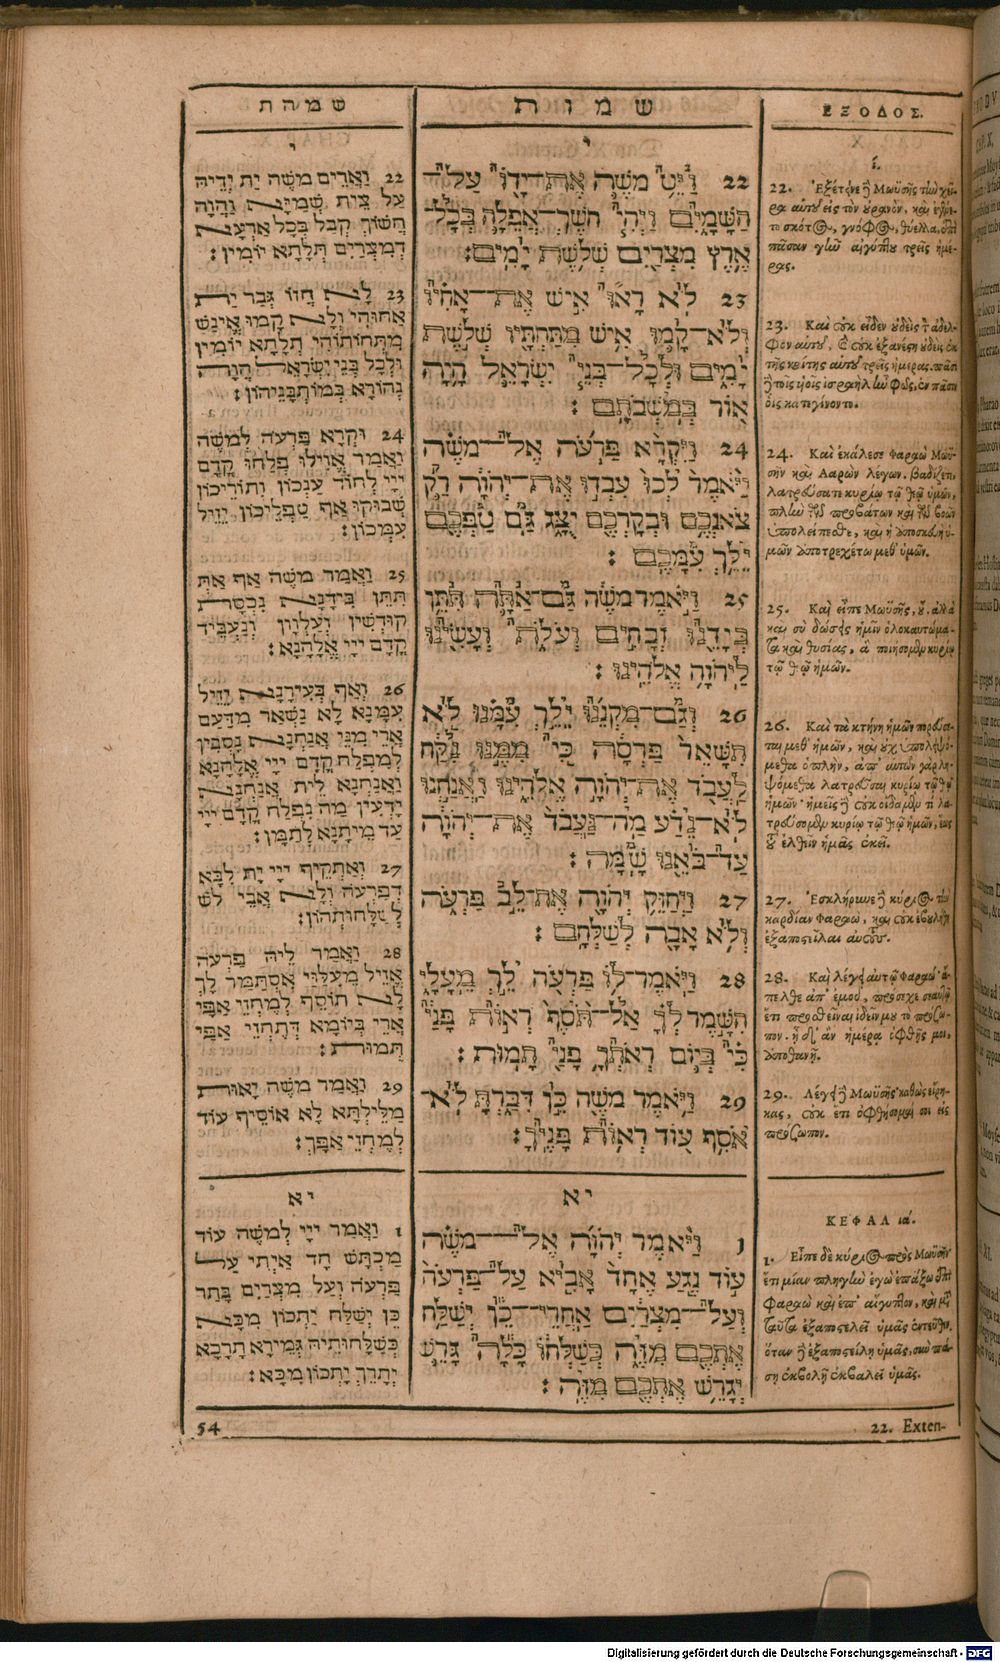 שמהת
י
22 וארים משה ית ידיה
על צית שמיא והוה
חשוך קבל בכל ארעא
דמצרים תלתא יומין:
23 לא חזו גבר ית
אחוהי ולא קמו אינש
מתחותוהי תלתא יומין
ולכל בני ישראל הוה
נהורא במותבניהון:
24 וקרא פרעה למשה
ואמר אזילו פלחו קדם
ייי לחוד ענכון ותוריכון
שבוקו אף טפליכון יזיל
עמכון:
25 ואמר משה אף את
תתן בידנא נכסת
קודשין ועלוון ונעביד
קדם ייי אלהנא:
26 ואף בעירנא יזיל
עמנא לא נשאר מדעם
ארי מני אנחנא נסבין
למפלח קדם ייי אלהנא
ואנחנא לית אנחנא
ידעין מה נפלח קדם ייי
עד מיתנא לתמן:
27 ואתקיף ייי ית לבא
דפרעה ולא אבי לש
לשלחותהון:
28 ואמר ליה פרעה
אזיל מעלוי אסתמר לך
לא תוסף למחזי אפי
ארי ביומא דתחזי אפי
תמות:
29 ואמר משה יאות
מלילתא לא אוסיף עוד
למחזי אפך:
יא
1 ואמר ייי למשה עוד
מכתש חד איתי על
פרעה ועל מצרים בתר
כן ישלח יתכון מכא
כשלחותיה גמירא תרכא
יתרך יתכון מכא:
54
שמות
י
22 וַיֵּט מֹשֶׁה אֶת־יָדוֹ עַל־
הַשָּׁמָיִם וַיְהִי חֹשֶׁךְ־אֲפֵלָה בְּכָל־
אֶרֶץ מִצְרַיִם שְׁלֹשֶׁת יָמִים:
23 לֹא רָאוּ אִישׁ אֶת־אָחִיו
וְלֹא־קָמוּ אִישׁ מִתַּחְתָּיו שְׁלֹשֶׁת
יָמִים וּלְכָל־בְּנֵי יִשְׂרָאֵל הָיָה
אוֹר בְּמֹשְׁבֹתָם:
24 וַיִּקְרָא פַרְעֹה אֶל־מֹשֶׁה
וַיֹּאמֶר לְכוּ עִבְדוּ אֶת־יְהֹוָה רַק
צֹאנְכֶם וּבְקַרְכֶם יֻצָּג גַּם טַפְּכֶם
יֵלֵךְ עִמָּכֶם:
25 וַיֹּאמֶר מֹשֶׁה גַּם־אַתָּה תִּתֵּן
בְּיָדֵנוּ זְבָחִים וְעֹלֹת וְעָשִׂינוּ
לַיהֹוָה אֱלֹהֵינוּ:
26 וְגַם־מִקְנֵנוּ יֵלֵךְ עִמָּנוּ לֹא
תִשָּׁאֵר פַּרְסָה כִּי מִמֶּנּוּ נִקַּח
לַעֲבֹד אֶת־יְהֹוָה אֱלֹהֵינוּ וַאֲנַחְנוּ
לֹא־נֵדַע מַה־נַּעֲבֹד אֶת־יְהֹוָה
עַד־בֹּאֵנוּ שָׁמָּה:
27 וַיְחַזֵּק יְהֹוָה אֶת־לֵב פַּרְעֹה
וְלֹא אָבָה לְשַׁלְּחָם:
28 וַיֹּאמֶר־לוֹ פַרְעֹה לֵךְ מֵעָלָי
הִשָּׁמֶר לְךָ אַל־תֹּסֶף רְאוֹת פָּנַי
כִּי בְּיוֹם רְאֹתְךָ פָנַי תָּמוּת:
29 וַיֹּאמֶר מֹשֶׁה כֵּן דִּבַּרְתָּ לֹא־
אֹסִף עוֹד רְאוֹת פָּנֶיךָ:
יא
1 וַיֹּאמֶר יְהֹוָה אֶל־מֹשֶׁה
עוֹד נֶגַע אֶחָד אָבִיא עַל־פַּרְעֹה
וְעַל־מִצְרַיִם אַחֲרֵי־כֵן יְשַׁלַּח
אֶתְכֶם מִזֶּה כְּשַׁלְּחוֹ כָּלָה גָּרֵשׁ
יְגָרֵשׁ אֶתְכֶם מִזֶּה:
ΕΞΟΔΟΣ.
ί.
22. Ἐξέτεινε δὲ Μωϋσῆς τὴν χεῖ-
ρα αὐτοῦ εἰς τὸν οὐρανὸν, καὶ ἐγένε-
το σκότος, γνόφος, θύελλα, ἐπὶ
πᾶσαν γῆν αἰγύπτου τρεῖς ἡμέ-
ρας.
23. Καὶ οὐκ εἶδεν οὐδεὶς τὸν ἀδελ-
φὸν αὐτοῦ, καὶ οὐκ ἐξανέστη οὐδεὶς ἐκ
τῆς κοίτης αὐτοῦ τρεῖς ἡμέρας. πᾶσι
δὲ τοῖς υἱοῖς ἰσραὴλ ἦν φῶς, ἐν πᾶσιν
οἷς κατεγίνοντο.
24. Καὶ ἐκάλεσε Φαραὼ Μωϋ-
σῆν καὶ Ααρὼν λέγων. βαδίζετε,
λατρεύσατε κυρίῳ τῷ θεῷ ὑμῶν,
πλὴν τῶν προβάτων καὶ τῶν βοῶν
ὑπολείπεσθε, καὶ ἡ ἀποσκευὴ ὑ-
μῶν ἀποτρεχέτω μεθ' ὑμῶν.
25. Καὶ εἶπε Μωϋσῆς, οὔ. ἀλλὰ
καὶ σὺ δώσεις ἡμῖν ὁλοκαυτώμα-
τα καὶ θυσίας, ἃ ποιήσομεν κυρίῳ
τῷ θεῷ ἡμῶν.
26. Καὶ τὰ κτήνη ἡμῶν πορεύσε-
ται μεθ' ἡμῶν, καὶ οὐχ ὑπολειψό-
μεθα ὁπλὴν, ἀπ' αὐτῶν γὰρ λη-
ψόμεθα λατρεῦσαι κυρίῳ τῷ θεῷ
ἡμῶν· ἡμεῖς δὲ οὐκ οἴδαμεν τί λα-
τρεύσομεν κυρίῳ τῷ θεῷ ἡμῶν, ἕως
οὗ ἐλθεῖν ἡμᾶς ἐκεῖ.
27. Ἐσκλήρυνε δὲ κύριος τὴν
καρδίαν Φαραὼ, καὶ οὐκ ἐβουλήθη
ἐξαποστεῖλαι αὐτούς.
28. Καὶ λέγει αὐτῷ Φαραώ· ἄ-
πελθε ἀπ' ἐμοῦ, πρόσεχε σεαυτῷ
ἔτι προσθεῖναι ἰδεῖν μου τὸ πρόσω-
πον. ᾗ δ' ἂν ἡμέρᾳ ὀφθῇς μοι,
ἀποθανῇ.
29. Λέγει δὲ Μωϋσῆς· καθὼς εἴρη-
κας, οὐκ ἔτι ὀφθήσομαί σοι εἰς
πρόσωπον.
ΚΕΦΑΛ ιά.
1. Εἶπε δὲ κύριος πρὸς Μωϋσῆν·
ἔτι μίαν πληγὴν ἐγὼ ἐπάξω ἐπὶ
Φαραὼ καὶ ἐπ' αἴγυπτον, καὶ μετὰ
ταῦτα ἐξαποστελεῖ ὑμᾶς ἐντεῦθεν.
ὅταν δὲ ἐξαποστείλῃ ὑμᾶς, σὺν πά-
σῃ ἐκβολῇ ἐκβαλεῖ ὑμᾶς.
22. Exten-
Digitalisierung gefördert durch die Deutsche Forschungsgemeinschaft - DFG